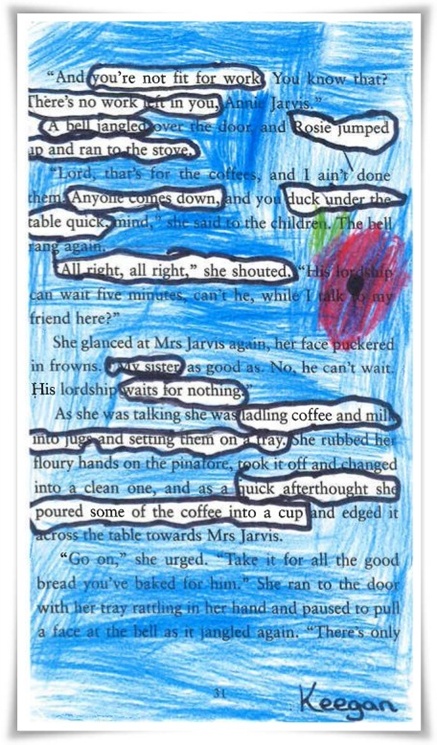 “And you're not fit for work. You know that?
There's no work left in you, Annie Jarvis.”
A bell jangled over the door, and Rosie jumped
up and ran to the stove.
“Lord, that's for the coffees, and I ain't done
them. Anyone comes down, and you duck under the
table quick, mind,” she said to the children. The bell
rang again.
“All right, all right,” she shouted. “His lordship
can wait five minutes, can't he, while I talk to my
friend here?”
She glanced at Mrs Jarvis again, her face puckered
in frowns. “My sister as good as. No, he can't wait.
His lordship waits for nothing.”
As she was talking she was ladling coffee and milk
into jugs and setting them on a tray. She rubbed her
floury hands on the pinafore, took it off and changed
into a clean one, and as a quick afterthought she
poured some of the coffee into a cup and edged it
across the table towards Mrs Jarvis.
“Go on,” she urged. “Take it for all the good
bread you've baked for him.” She ran to the door
with her tray rattling in her hand and paused to pull
a face at the bell as it jangled again. “There's only
31
Keegan